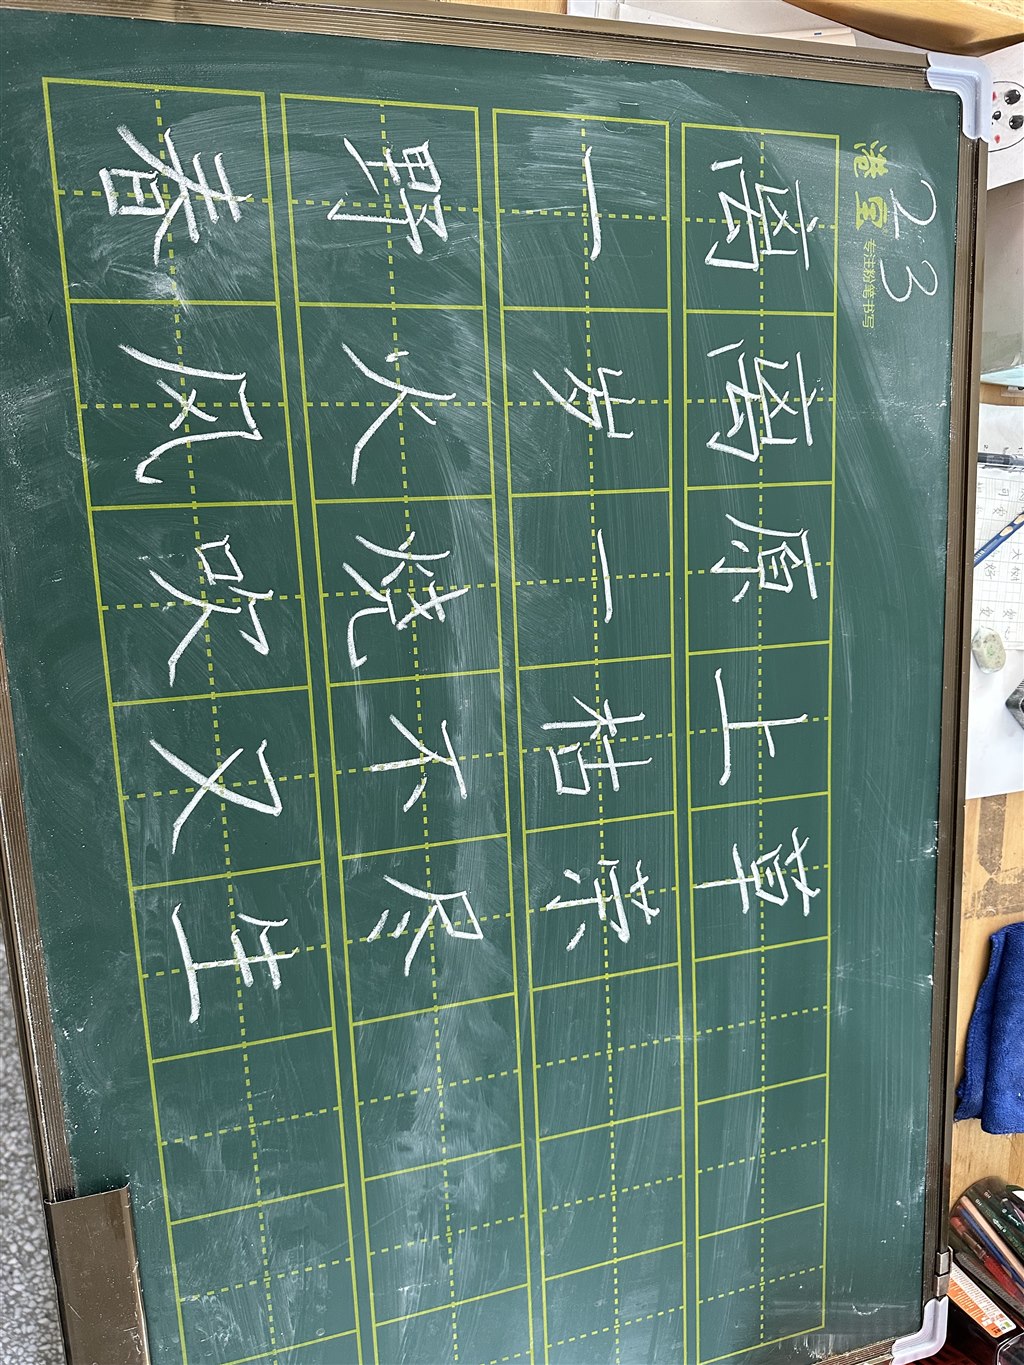 23
港宝 专注粉笔书写
离离原上草
一岁一枯荣
野火烧不尽
春风吹又生